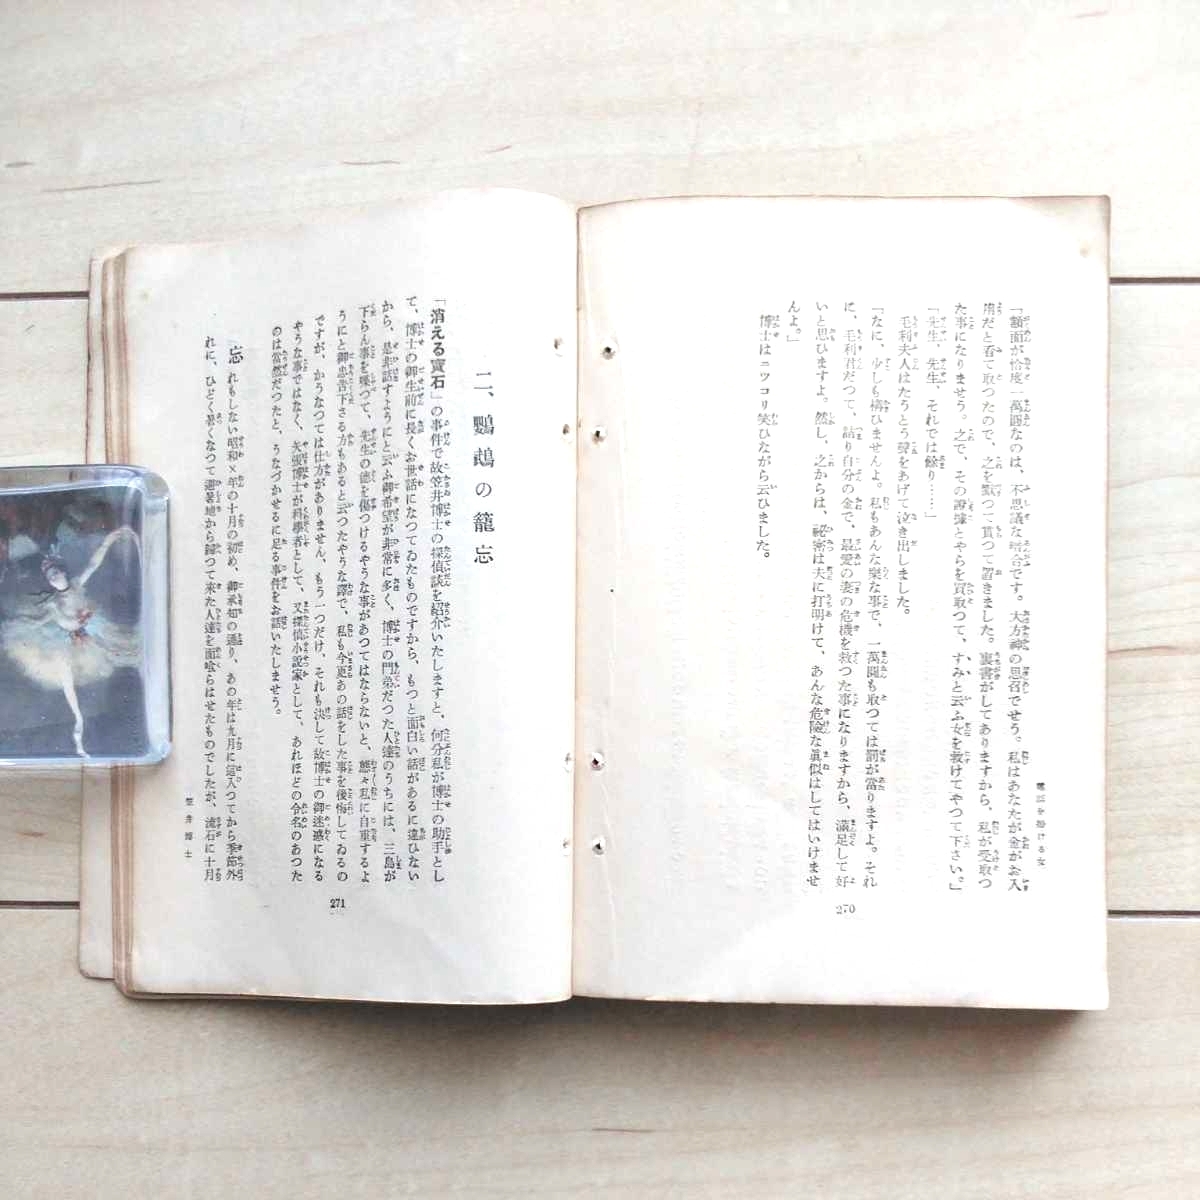 電話を掛ける女
「額面が恰度一萬圓なのは、不思議な暗合です。大方神の思召でせう。私はあなたが金がお入
用だと看て取つたので、之を默つて貰つて置きました。裏書がしてありますから、私が受取つ
た事になりませう。之で、その證據とやらを買取つて、すみと云ふ女を救けてやつて下さい。」
「先生、先生、それでは餘り……」
毛利夫人はたうとう聲をあげて泣き出しました。
「なに、少しも構ひませんよ。私もあんな樂な事で、一萬圓も取つては罰が當りますよ。それ
に、毛利君だつて、詰り自分の金で、最愛の妻の危機を救つた事になりますから、滿足して好
いと思ひますよ。然し、之からは、祕密は夫に打明けて、あんな危險な眞似はしてはいけませ
んよ。」
博士はニツコリ笑ひながら云ひました。
270
二、鸚鵡の籠忘
「消える寶石」の事件で故笠井博士の探偵談を紹介いたしますと、何分私が博士の助手とし
て、博士の御生前に長くお世話になつてゐたものですから、もつと面白い話があるに違ひない
から、是非話すようにと云ふ御希望が非常に多く、博士の門弟だつた人達のうちには、三島が
下らん事を喋つて、先生の德を傷つけるやうな事があつてはならないと、態々私に自重するよ
うにと御忠告下さる方もあると云つたやうな譯で、私も今更あの話をした事を後悔してゐるの
ですが、かうなつては仕方がありません、もう一つだけ、それも決して故博士の御迷惑になる
やうな事ではなく、矢張博士が科學者として、又探偵小説家として、あれほどの令名のあつた
のは當然だつたと、うなづかせるに足る事件をお話いたしませう。
忘れもしない昭和×年の十月の初め、御承知の通り、あの年は九月に這入つてから季節外
れに、ひどく暑くなつて避暑地から歸つて來た人達を面喰らはせたものでしたが、流石に十月
笠井博士
271